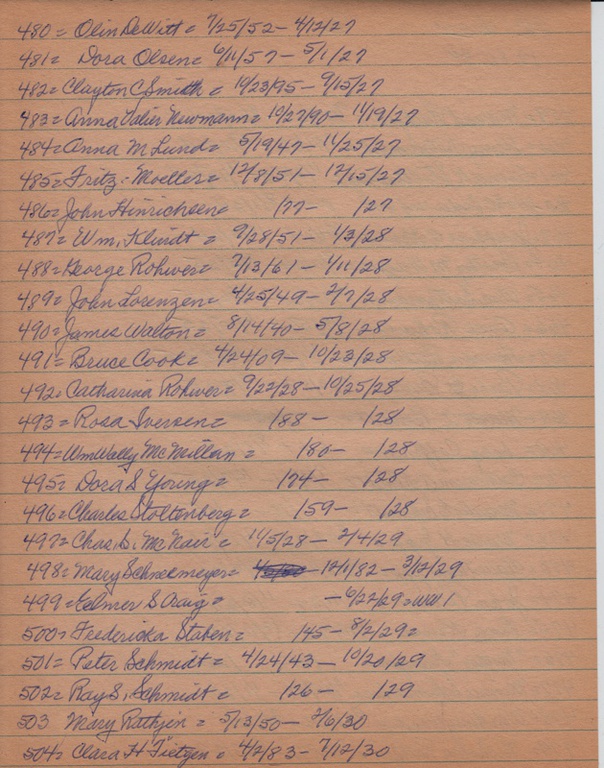 480= Olin DeWitt= 7/25/52- 4/12/27
481= Dora Olsen= 6/11/57- 5/1/27
482= Clayton C Smith= 10/23/95- 9/15/27
483= Anna Valier Newmann= 10/27/90- 11/19/27
484= Anna M Lund= 5/19/47- 11/25/27
485= Fritz- Moeller= 12/8/51- 12/15/27
486= John Hinrichsen= /77- /27
487= Wm. Klindt= 9/28/51- 1/3/28
488= George Rohwer= 7/13/61- 1/11/28
489= John Lorenzen= 4/25/49- 2/7/28
490= James Walton= 8/14/40- 5/8/28
491= Bruce Cook= 4/24/09- 10/23/28
492= Catharina Rohwer= 9/22/28- 10/25/28
493= Rosa Iversen= /88- /28
494= Wm Wally McMillan= /80- /28
495= Dora S Young= /74- /28
496= Charles Stoltenberg= /59- /28
497= Chas. S. McNair= 11/5/28- 2/4/29
498= Mary Schneemeyer= 12/1/82- 3/12/29
499= Eelmer S Craig= - 6/22/29= WW 1
500= Fredericka Staben= /45- 8/2/29=
501= Peter Schmidt= 4/24/43- 10/20/29
502= Ray S. Schmidt= /26- /29
503 Mary Rathjen= 5/13/50- 2/6/30
504= Clara H Tietjen= 4/2/83- 7/12/30